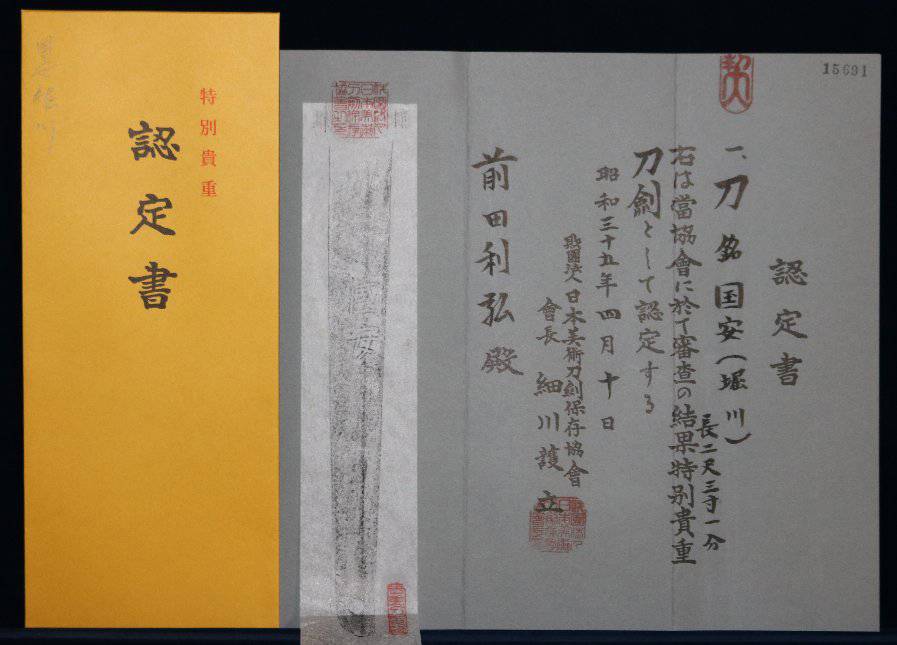 15691
認定書
一、刀 銘 国安(堀川)
長二尺三寸一分
右は當協會に於て審査の結果特別貴重
刀剣として認定する
昭和三十五年四月十日
財團法人日本美術刀剣保存協會
會長 細川護立
前田利弘殿
特別貴重
認定書